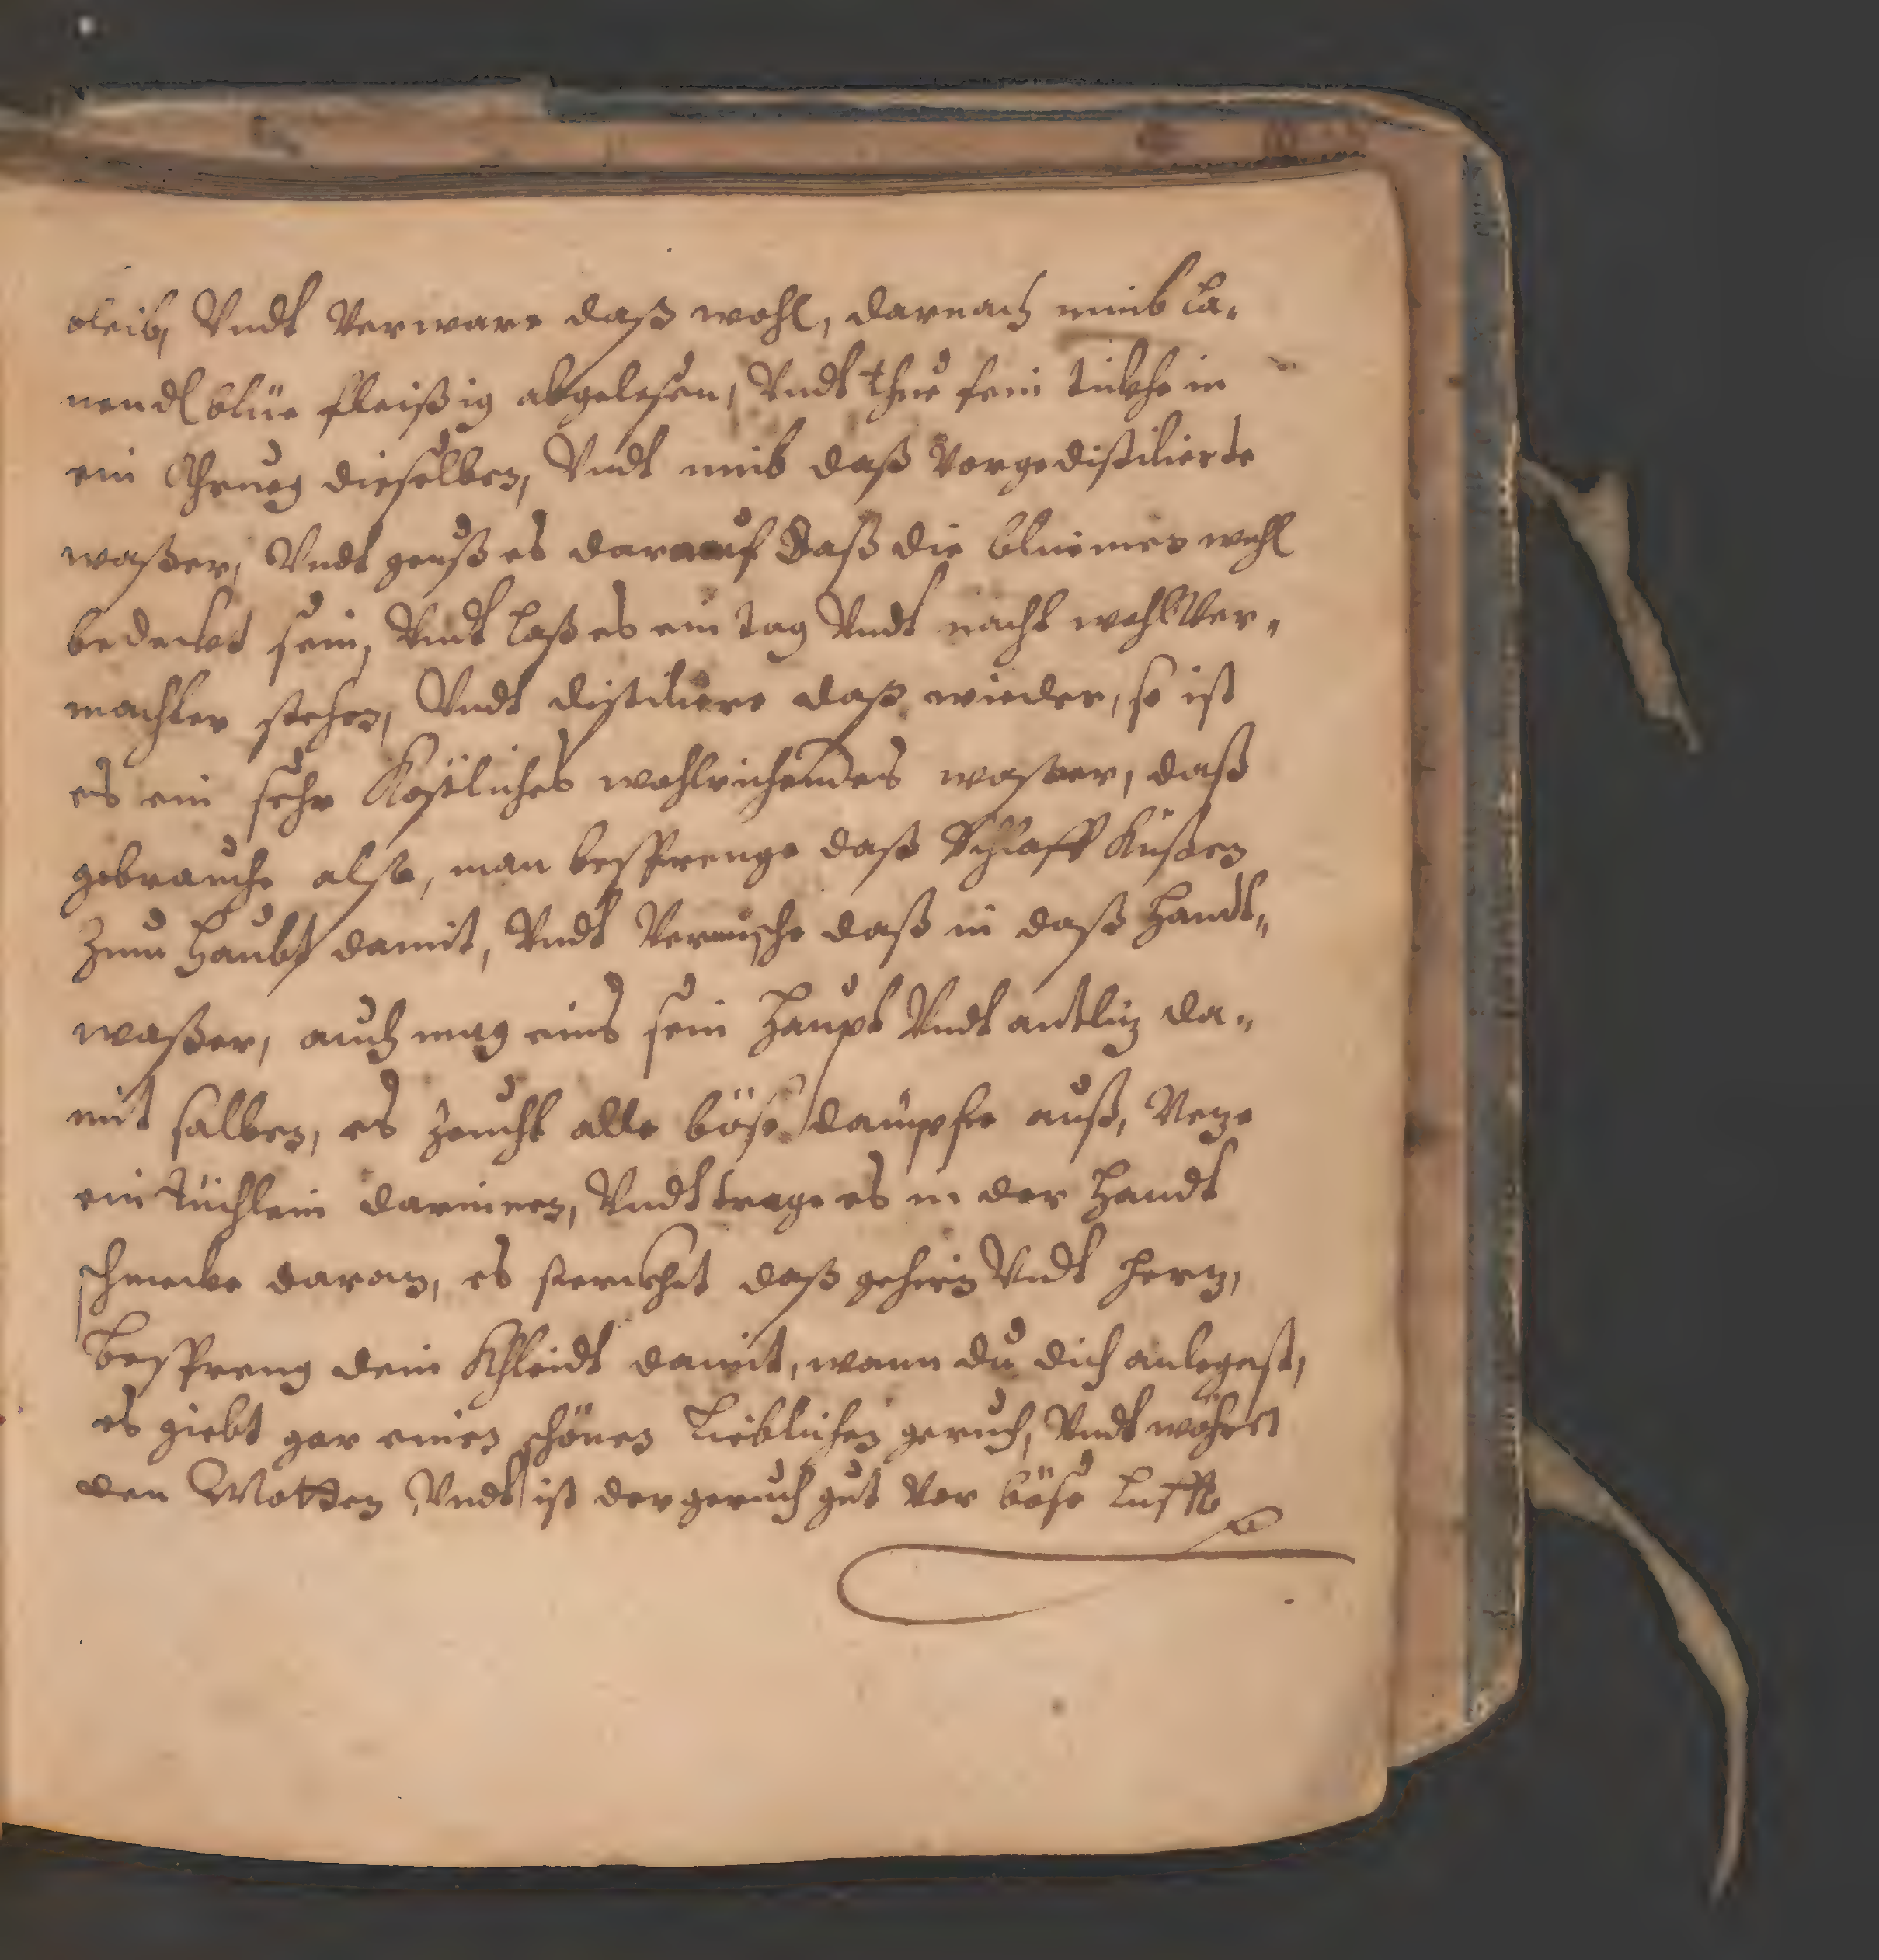 bleib, Vndt Verware daß wohl, darnach nimb La„
nendl blüe fleißig abgelesen, Vndt thue fein dickhe in
ein Khrueg dieselben, Vndt nimb daß Vorgedistilierte
waßer, Vndt geuß es darauf daß die bluemen wohl
bedeckt sein, Vndt laß es ein tag Vndt nacht wohl Ver„
machter stehen, Vndt distiliere daß wieder, so ist
es ein sehr Köstliches wohlrichendes waßer, daß
gebrauche also, man besprenge daß Schlaff Küßen
zum Haubt damit, Vndt Vermische daß in daß Handt„
waßer, auch mag eins sein Haupt Vndt antliz da„
mit salben, es zeucht alle böse dämpfe auß, Neze
ein tüchlein darinnen, Vndt trage es in der Handt
schmecke daran, es sterckhet daß gehirn Vndt Herz,
Bespreng dein Khleidt damit, wann du dich anlegest,
es giebt gar einen schönen Lieblichen geruch, Vndt wöhret
den Motten Vndt ist der geruch gut Vor böse Lufft